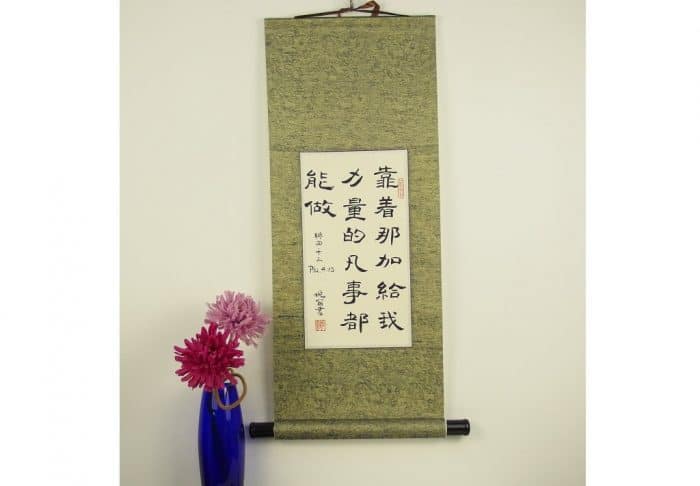 靠着那加給我
力量的凡事都
能做
腓四十三
Phi. 4:13